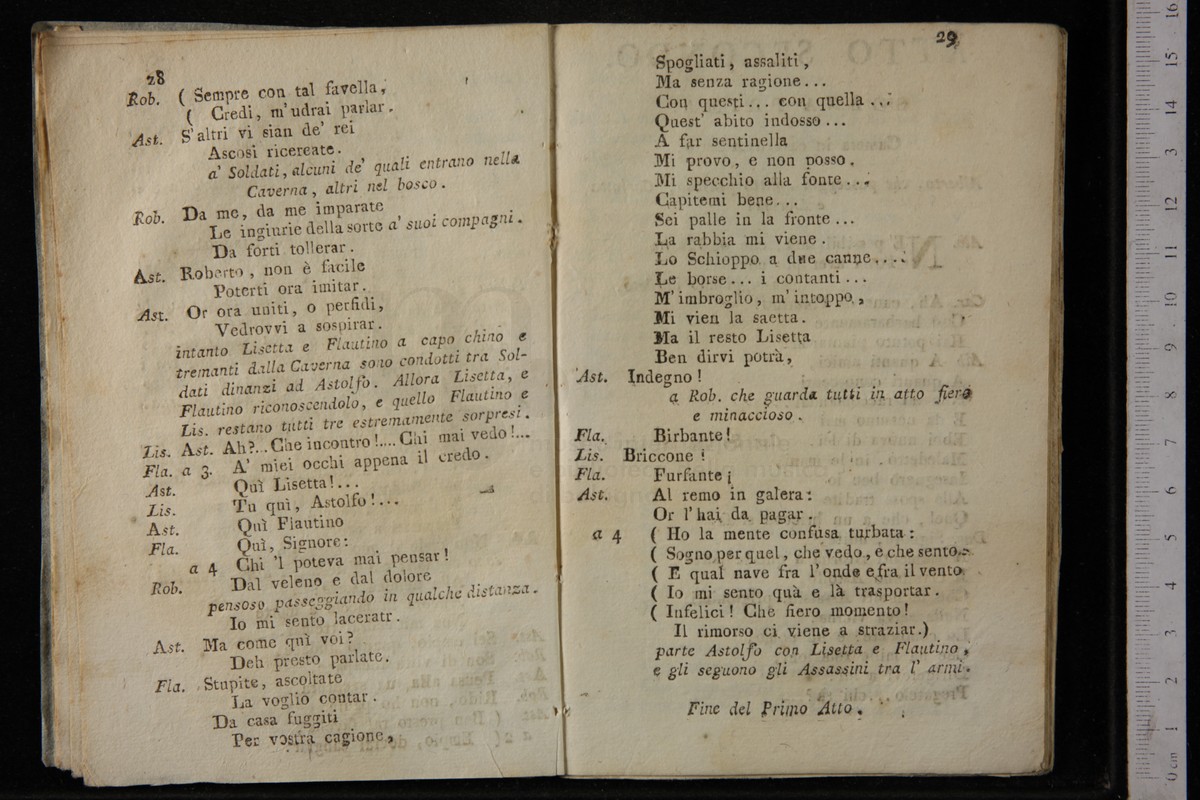 28
Rob. ( Sempre con tal favella,
( Credi, m'udrai parlar.
Ast. S'altri vi sian de' rei
Ascosi ricercate.
a' Soldati, alcuni de' quali entrano nella
Caverna, altri nel bosco.
Rob. Da me, da me imparate
Le ingiurie della sorte a' suoi compagni.
Da forti tollerar.
Ast. Roberto, non è facile
Poterti ora imitar.
Ast. Or ora uniti, o perfidi,
Vedrovvi a sospirar.
intanto Lisetta e Flautino a capo chino e
tremanti dalla Caverna sono condotti tra Sol-
dati dinanzi ad Astolfo. Allora Lisetta, e
Flautino riconoscendolo, e quello Flautino e
Lis. restano tutti tre estremamente sorpresi.
Lis. Ast. Ah?...Che incontro!....Chi mai vedo!...
Fla. a 3. A' miei occhi appena il credo.
Ast. Quì Lisetta!...
Lis. Tu quì, Astolfo!...
Ast. Quì Flautino
Fla. Quì, Signore:
a 4 Chi 'l poteva mai pensar!
Rob. Dal veleno e dal dolore
pensoso passeggiando in qualche distanza.
Io mi sento laceratr.
Ast. Ma come quì voi?
Deh presto parlate.
Fla. Stupite, ascoltate
La voglio contar.
Da casa fuggiti
Per vostra cagione,
29
Spogliati, assaliti,
Ma senza ragione...
Con questi... con quella...
Quest' abito indosso...
A far sentinella
Mi provo, e non posso.
Mi specchio alla fonte...
Capitemi bene...
Sei palle in la fronte...
La rabbia mi viene.
Lo Schioppo a due canne....
Le borse... i contanti...
M'imbroglio, m'intoppo,
Mi vien la saetta.
Ma il resto Lisetta
Ben dirvi potrà,
Ast. Indegno!
a Rob. che guarda tutti in atto fiero
e minaccioso.
Fla. Birbante!
Lis. Briccone!
Fla. Furfante¡
Ast. Al remo in galera:
Or l'hai da pagar.
a 4 ( Ho la mente confusa turbata:
( Sogno per quel, che vedo, e che sento.
( E qual nave fra l'onde e fra il vento
( Io mi sento quà e là trasportar.
( Infelici! Che fiero momento!
Il rimorso ci viene a straziar.)
parte Astolfo con Lisetta e Flautino,
e gli seguono gli Assassini tra l' armi.
Fine del Primo Atto.